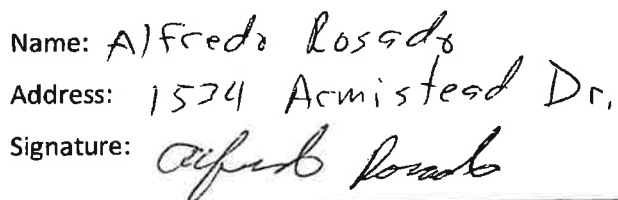 Name: Alfredo Rosado
Address: 1534 Armistead Dr.
Signature: Alfredo Rosado